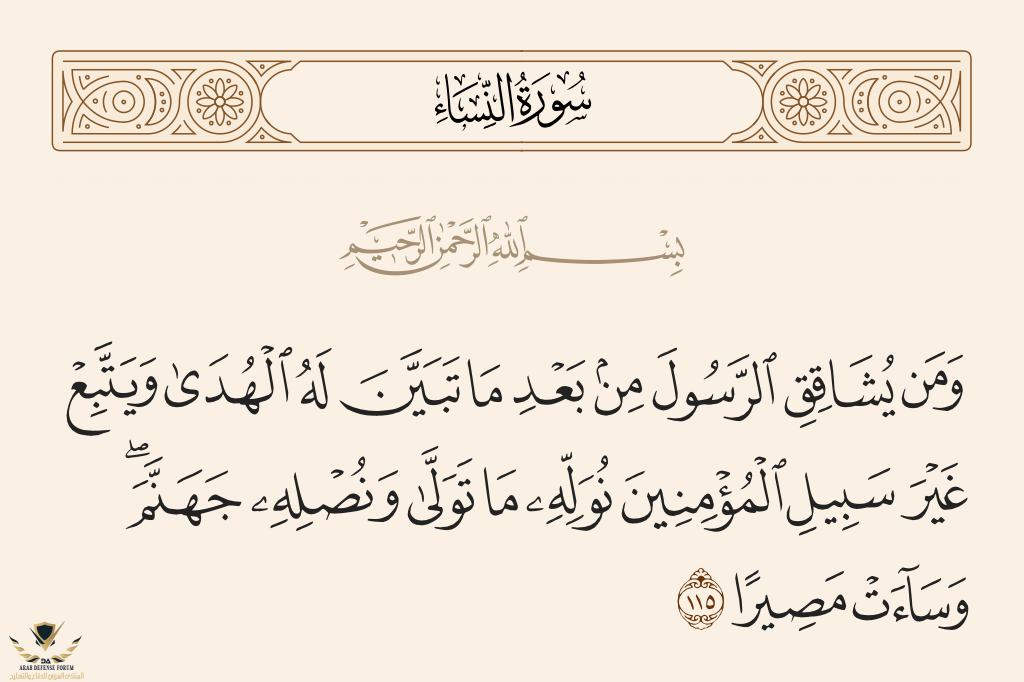 سُورَةُ النِّسَاءِ
بِسْمِ ٱللَّهِ ٱلرَّحْمَٰنِ ٱلرَّحِيمِ
وَمَن يُشَاقِقِ ٱلرَّسُولَ مِنۢ بَعْدِ مَا تَبَيَّنَ لَهُ ٱلْهُدَىٰ وَيَتَّبِعْ
غَيْرَ سَبِيلِ ٱلْمُؤْمِنِينَ نُوَلِّهِۦ مَا تَوَلَّىٰ وَنُصْلِهِۦ جَهَنَّمَۖ
وَسَآءَتْ مَصِيرًا ١١٥
DA
ARAB DEFENSE FORUM
المنتدى العربي للدفاع والتسليح